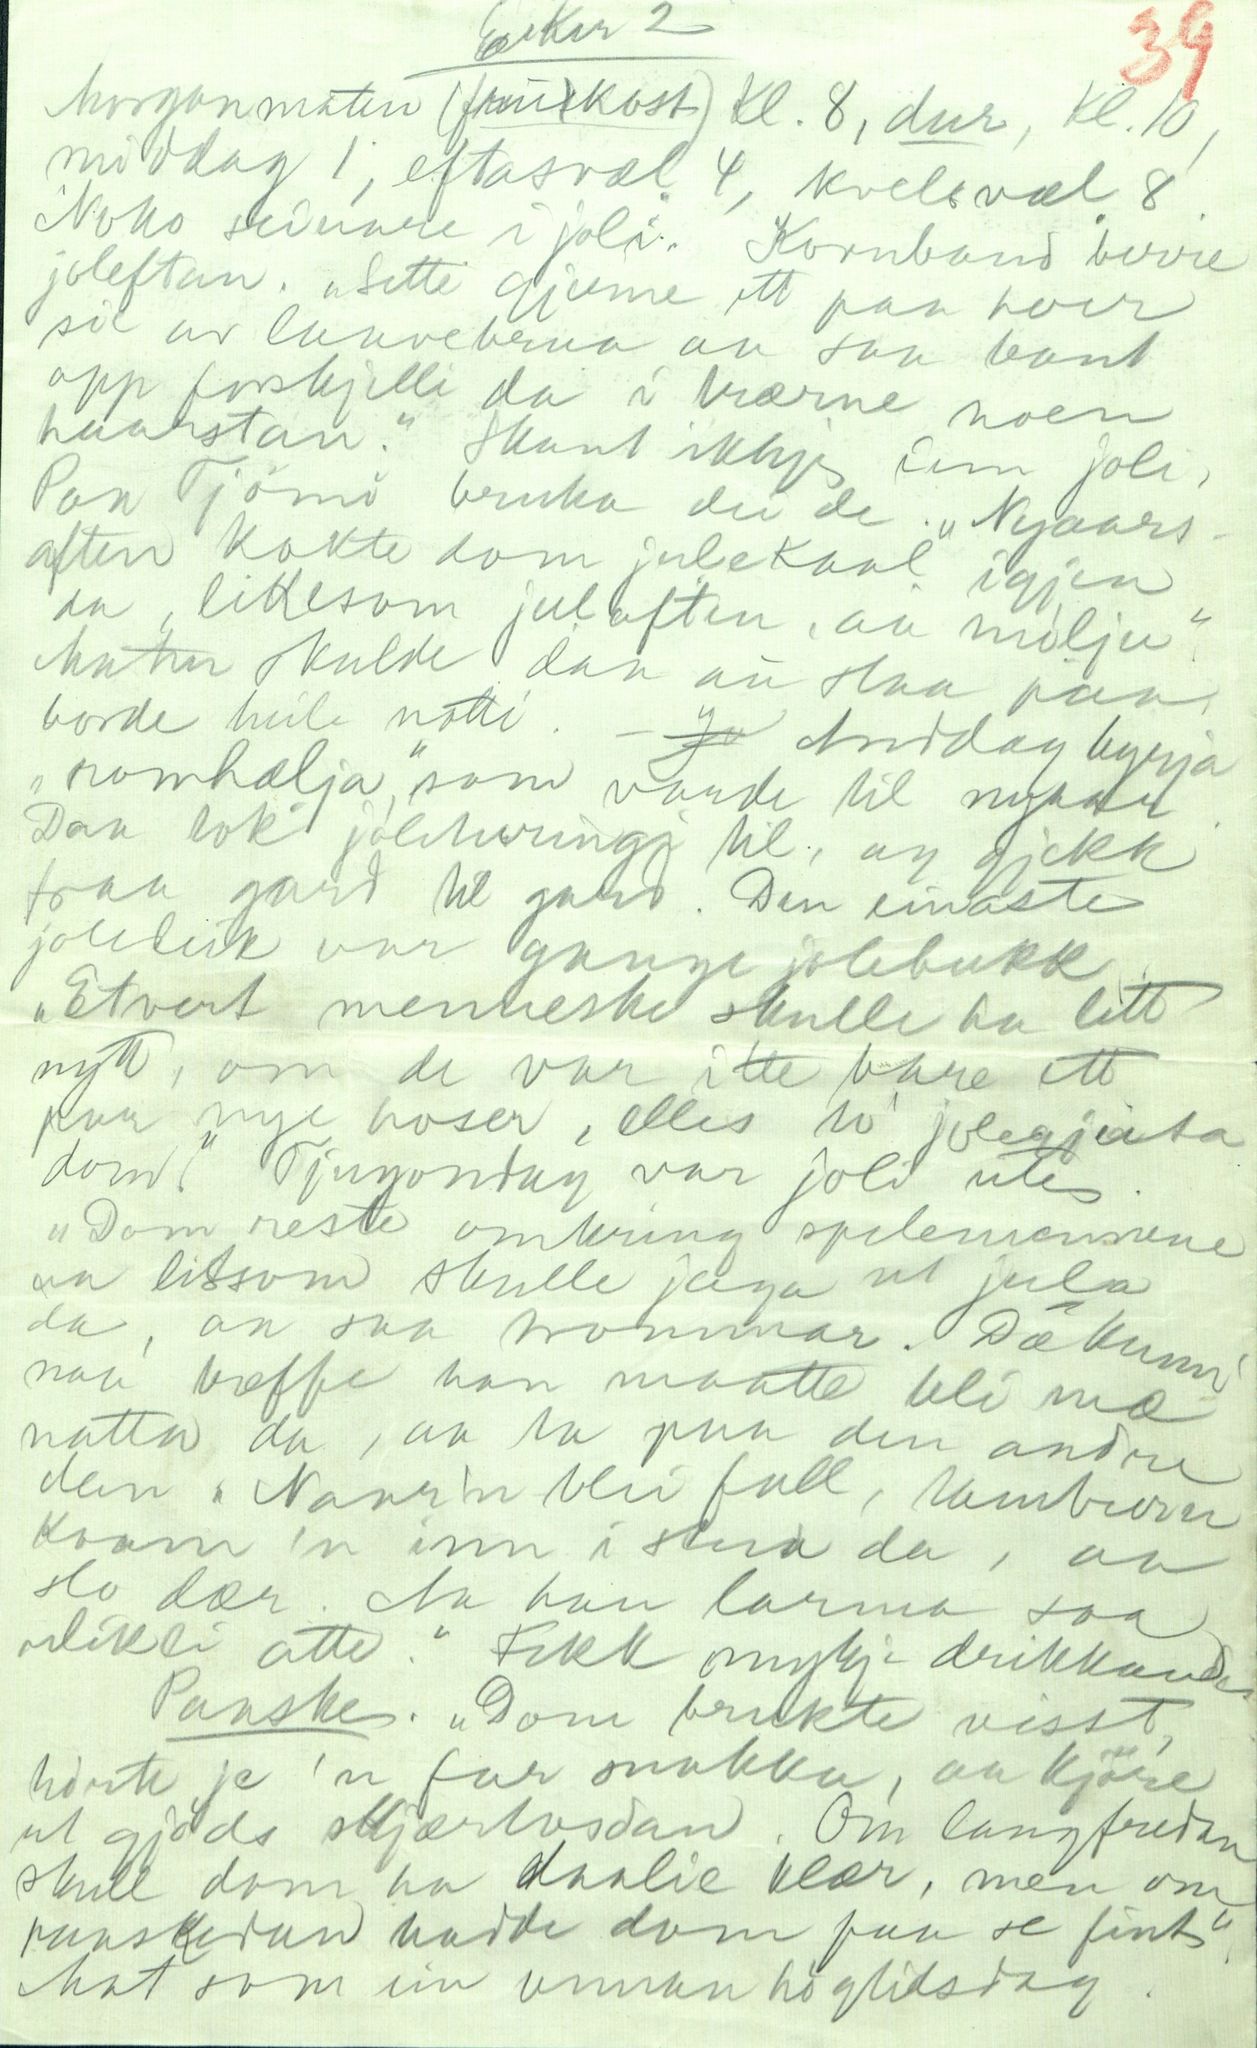 Eiker 2
39
Morganmaten (frukost) Kl. 8, dur, Kl. 10,
middag 1, eftasvæl 4, kvelsvæl 8.
Noko seinare i joli. Kornband
joleftan. "Sette gjerne ett paa hver
sie av laavebrua aa saa bant
opp forskjelli da i trærne noen
haarstan." Skaut ikkje inn joli,
Paa Tjömö bruka dei de. "Nyaars-
aften kokte dom julekaal igjen
da, likesom julaften, aa mölju".
Maten skulde daa au staa paa
borde heile notti. - Anndag byrja
"romhælja", som varde til nyaar.
Daa tok joletturingj til, og gjekk
fraa gard til gard. Den einaste
joleleik var gange jolebukk.
"Etvert menneske skulle ha litt
nytt, om de var itte bare ett
par nye hoser, elles to jolegjeita
dom." Tjugondag var joli ute.
"Dom reste omkring spelemennene
aa litssom skulle jaga ut jula
da, aa saa trommar. Dæ kunn
naa træffe han maatte bli mæ
natta da, aa ta paa den andre
den. Naar'n blei full, tambur'n
kaam 'n inn i stua da, aa
slo dær. Aa han larma saa
itte." Fekk mykje drikkande
Paaske. "Dom brukte visst,
hörte je 'n far snakka, aa kjöre
ut gjöds skjærtorsdan. Om langfredan
skull dom ha daalie klær, men om
paaskedan hadde dom paa se fint".
Mat som ein annan högtidsdag.